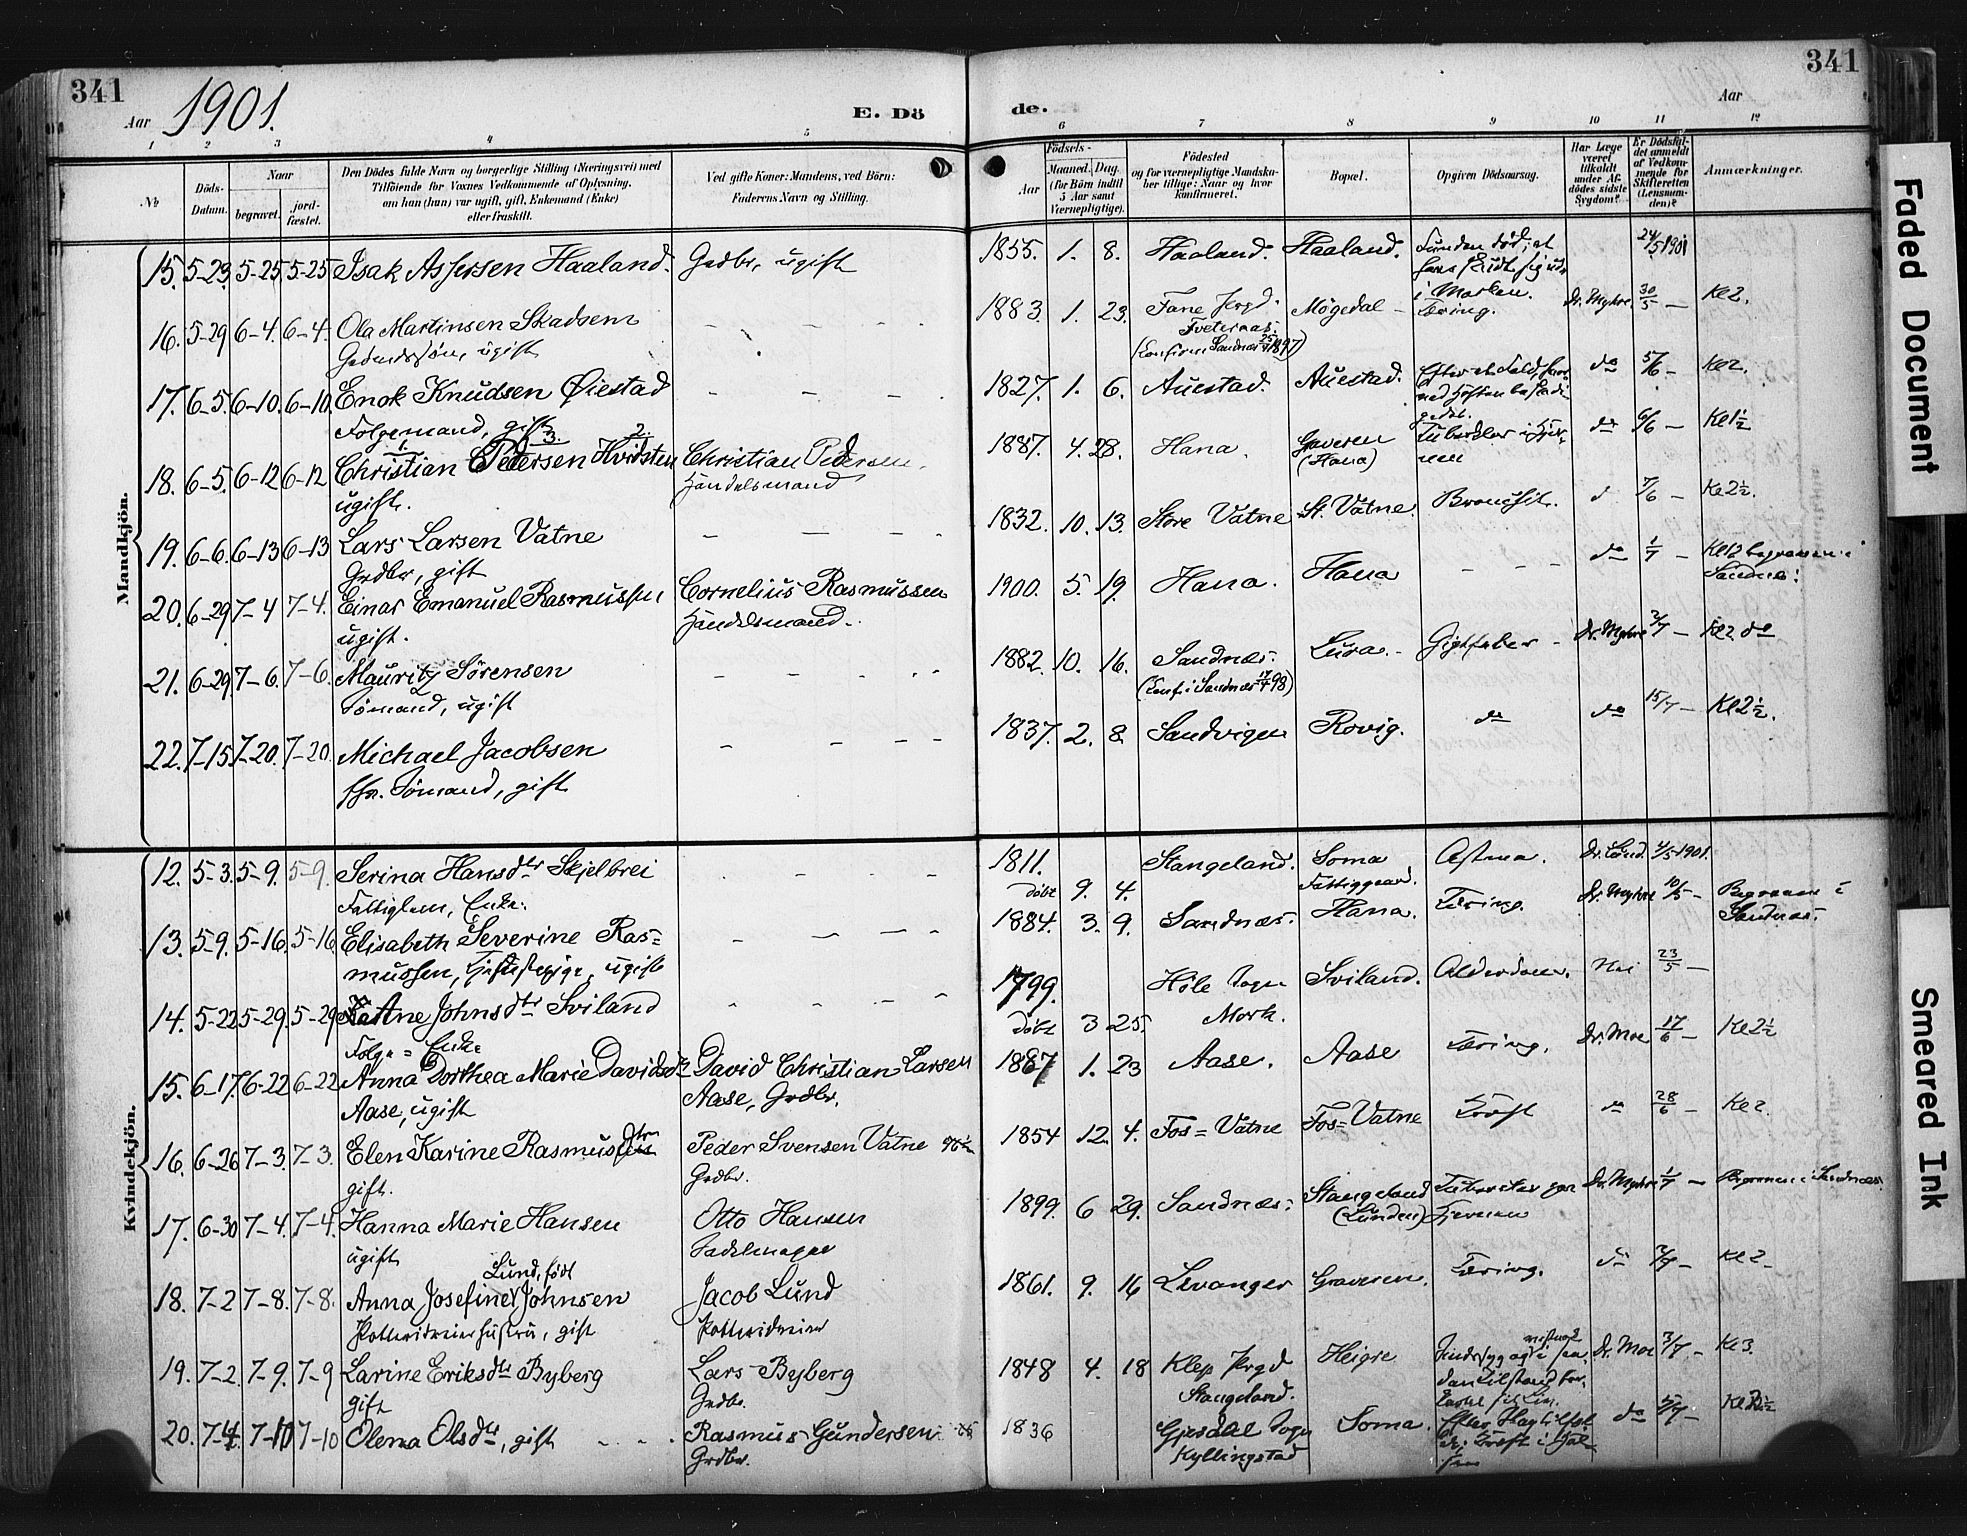 341
1901.
Aar
E. Dö
de.
341
Aar
1 2 3 4 5 6 7 8 9 10 11 12
№
Döds-Datum.
Naar
begravet.
jord-fæstet.
Den Dödes fulde Navn og borgerlige Stilling (Næringsvei) med
Tilföiende for Voxnes Vedkommende af Oplysning,
om han (hun) var ugift, gift, Enkemand (Enke)
eller fraskilt.
Ved gifte Koner: Mandens, ved Börn:
Faderens Navn og Stilling.
Födsels-
Aar
Maaned. Dag.
(for Börn indtil
5 Aar samt
Værnepligtige).
Födested
og for værnepligtige Mandska-
ber tillige: Naar og hvor
konfirmeret.
Bopæl.
Opgiven Dödsaarsag.
Har Læge
været
tilkaldt
under Af-
dödes sidste
Sygdom?
Er Dödsfal-
det anmeldt
af Vedkom-
mende for
Skifteretten
(Lensman-
den)?
Anmærkninger.
Mandkjön.
15. 5-23. 5-25 5-25 Isak Assersen Haaland. Grdbr, ugift 1855. 1. 8. Haaland. Haaland. Funden død; at 24/5 1901
i Marken.
16. 5-29 6-4. 6-4. Ola Martinsen Skadsem 1883. 1. 23. Fane Jergd. Mögedal Tæring. Dr. Myhre. 30/5 Kl 2.
ugift Tveternæs.
(Konfirm Sandnæs 25/4 1897)
17. 6-5. 6-10. 6-10. Enok Knudsen Øiestad 1827. 1. 6. Auestad. Auestad. do 5/6 Kl 2.
Folgemand, gift
18. 6-5. 6-12 6-12 Christian Pedersen Hvidsten Christian Pedersen. 1887. 4. 28. Hana. Graveren do 6/6 Kl 1½
ugift. Handelsmand (Hana)
19. 6-6. 6-13 6-13 Lars Larsen Vatne 1832. 10. 13. Store Vatne St. Vatne. 7/6 Kl 2½.
Grdbr, gift
20. 6-29 7-4 7-4. Einar Emanuel Rasmussen Cornelius Rasmussen 1900. 5. 19. Hana. Hana do 1/7
ugift. Handelsmand. Sandnæs.
21. 6-29. 7-6. 7-6. Mauritz Sørensen 1882. 10. 16. Sandnæs. Lura. Gigtfeber Dr. Myhre 2/7 Kl 2 do
Sømand, ugift (Konf. i Sandnæs 17/4 98)
22. 7-15. 7-20. 7-20. Michael Jacobsen 1837. 2. 8. Sandvigen Rovig. do do 15/7 Kl 2½.
fhv. Sømand, gift
Kvindekjön.
12. 5-3. 5-9. 5-9. Serina Hansdtr Skjelbrei 1811. Stangeland. Soma Astma. Dr. Lund. 4/5 1901.
Fattiglem, Enke. døbt 9. 4. Fattiggaard.
13. 5-9. 5-16. 5-16 Elisabeth Severine Ras= 1884. 3. 9. Sandnæs. Hana. Tæring. Dr. Myhre 10/5 Begraven i
mussen, Tjenestepige, ugift Sandnæs.
14. 5-22 5-29. 5-29 Ane Johnsdtr Sviland 1799. Høle Sogn Sviland. Alderdom. Nei 23/5
Folge= Enke døbt 3 25. Mork.
15. 6-17. 6-22 6-22 Anna Dorthea Marie Davidsdtr David Christian Larsen 1887 1. 23 Aase. Aase Tæring. Dr. Moe 17/6 Kl 2½
Aase, ugift Aase, Grdbr.
16. 6-26 7-3. 7-3. Elen Karine Rasmusdtr Peder Svensen Vatne 1854 12. 4. Fos=Vatne Fos=Vatne Kræft do 28/6 Kl 2.
gift. Grdbr.
17. 6-30 7-4. 7-4. Hanna Marie Hansen Otto Hansen 1899. 6 29. Sandnæs. Stangeland Dr. Myhre 1/7 Begraven i Sandnæs
ugift Sadelmager (Lunden) Hjernen
Lund, født
18. 7-2 7-8. 7-8. Anna Josefine Johnsen Jacob Lund 1861. 9. 16 Levanger Graveren. Tæring. do 2/7 Kl 2
gift
19. 7-2. 7-9. 7-9 Larine Eriksdtr Byberg Lars Byberg 1848 4. 18 Klep Prgd Heigre Dr. Moe 3/7 Kl 3.
gift Grdbr. Stangeland.
20. 7-4. 7-10 7-10 Olena Olsdtr, gift Rasmus Gundersen 1836 Gjesdal Sogn Soma. do 5/7
Grdbr. Kyllingstad
Faded Document
Smeared Ink